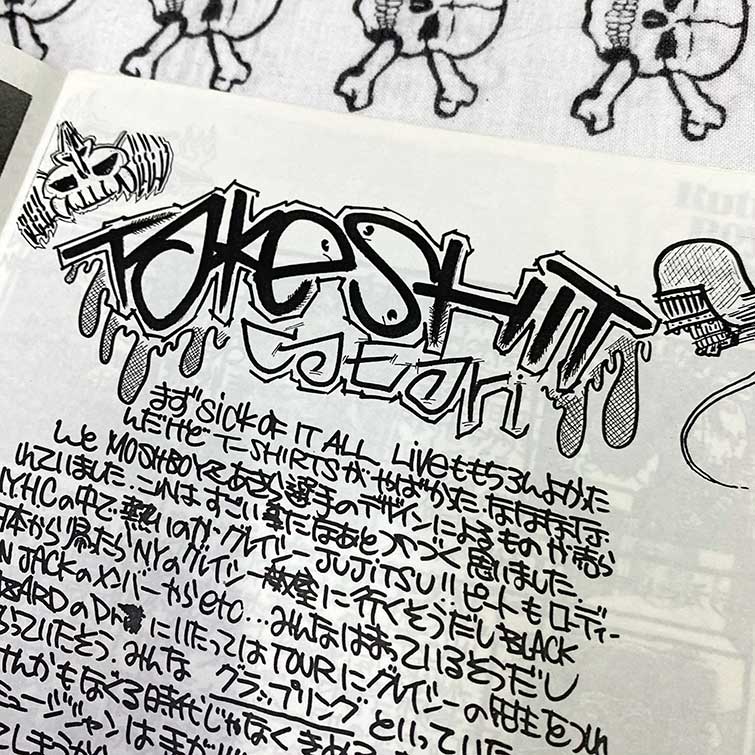 TAKESHIT
catari
まず SICK OF IT ALL LIVEももちろんよかった
んだけど T-SHIRTSがやばかた.ななな
んと MOSHBOYZあきら選手のデザインによるものが売ら
れていました.コレはすごい事になあとつくづく思いました.
NYHCの中で熱いのが.グレイシーJUJITSU!! ピートもローディー
日本から帰たらNYのグレイシー教室に行くそうだし BLACK
N JACKのメンバーからetc...みんなはまっているそうだし
ZARDのDr にいたってはTOURにグレイシーの先生をつれ
っていたそう.みんな グラップリング といっていた
けんかもなぐる時代じゃなく
ミュージシャンは手が
てしまうから